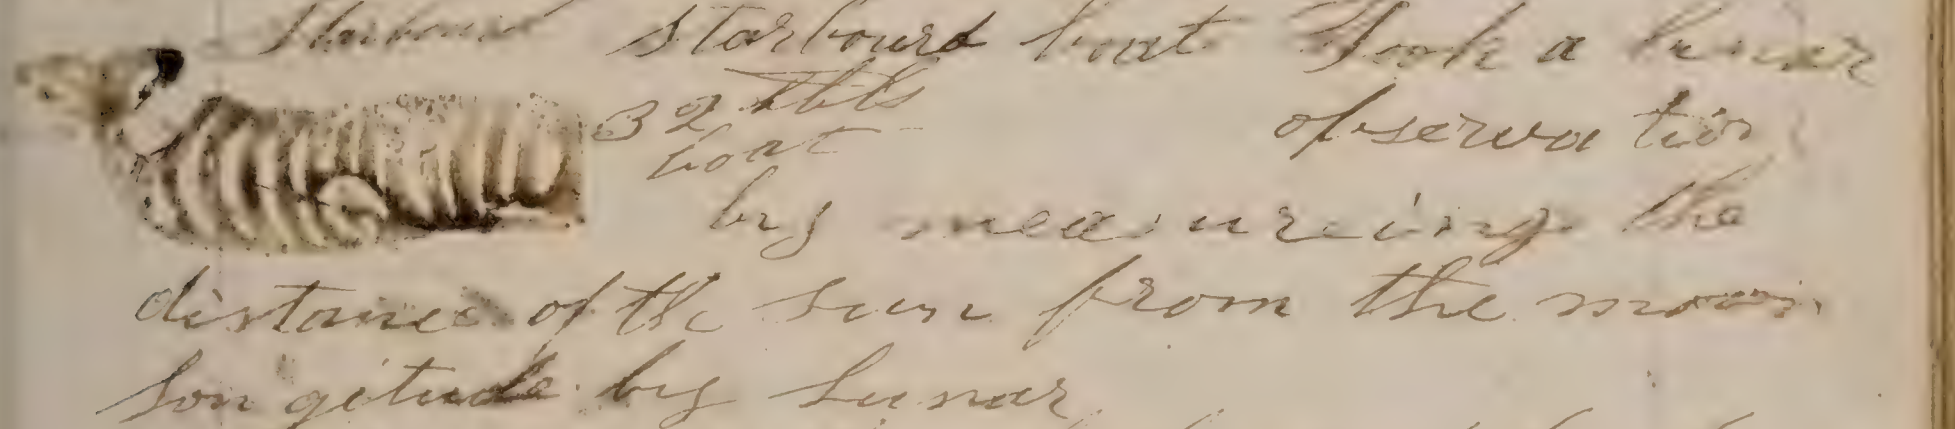 Starboard starbourd boat Took a lunar
32 bbls observation
boat
by measureing the
distance of the sun from the moon
Longitude by Lunar